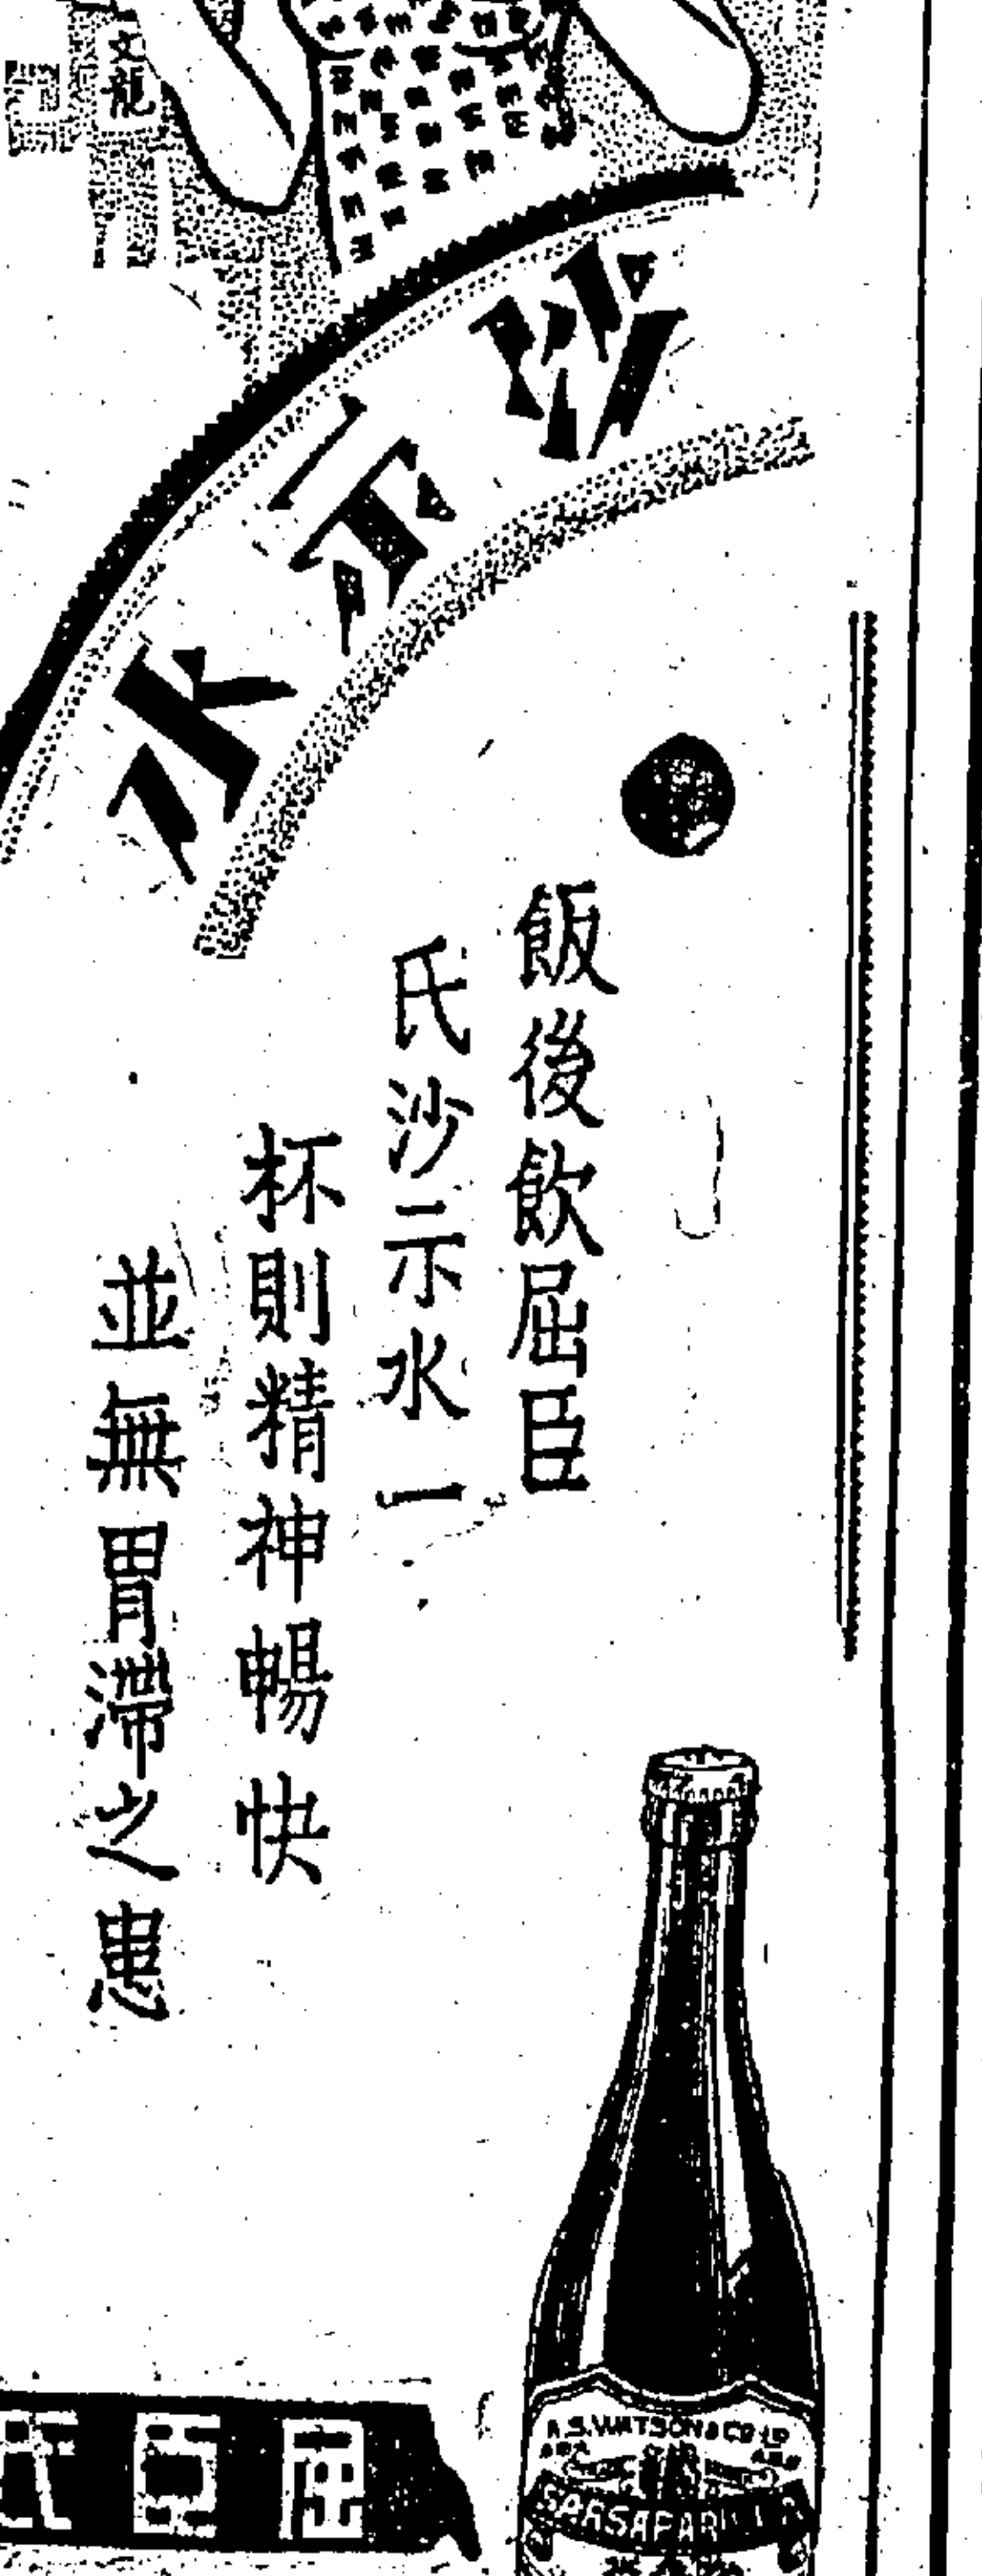 沙示水
飯後飲屈臣
氏沙示水一
杯則精神暢快
並無胃滯之患
A.S.WATSON & CO LD
SARSAPARILLA